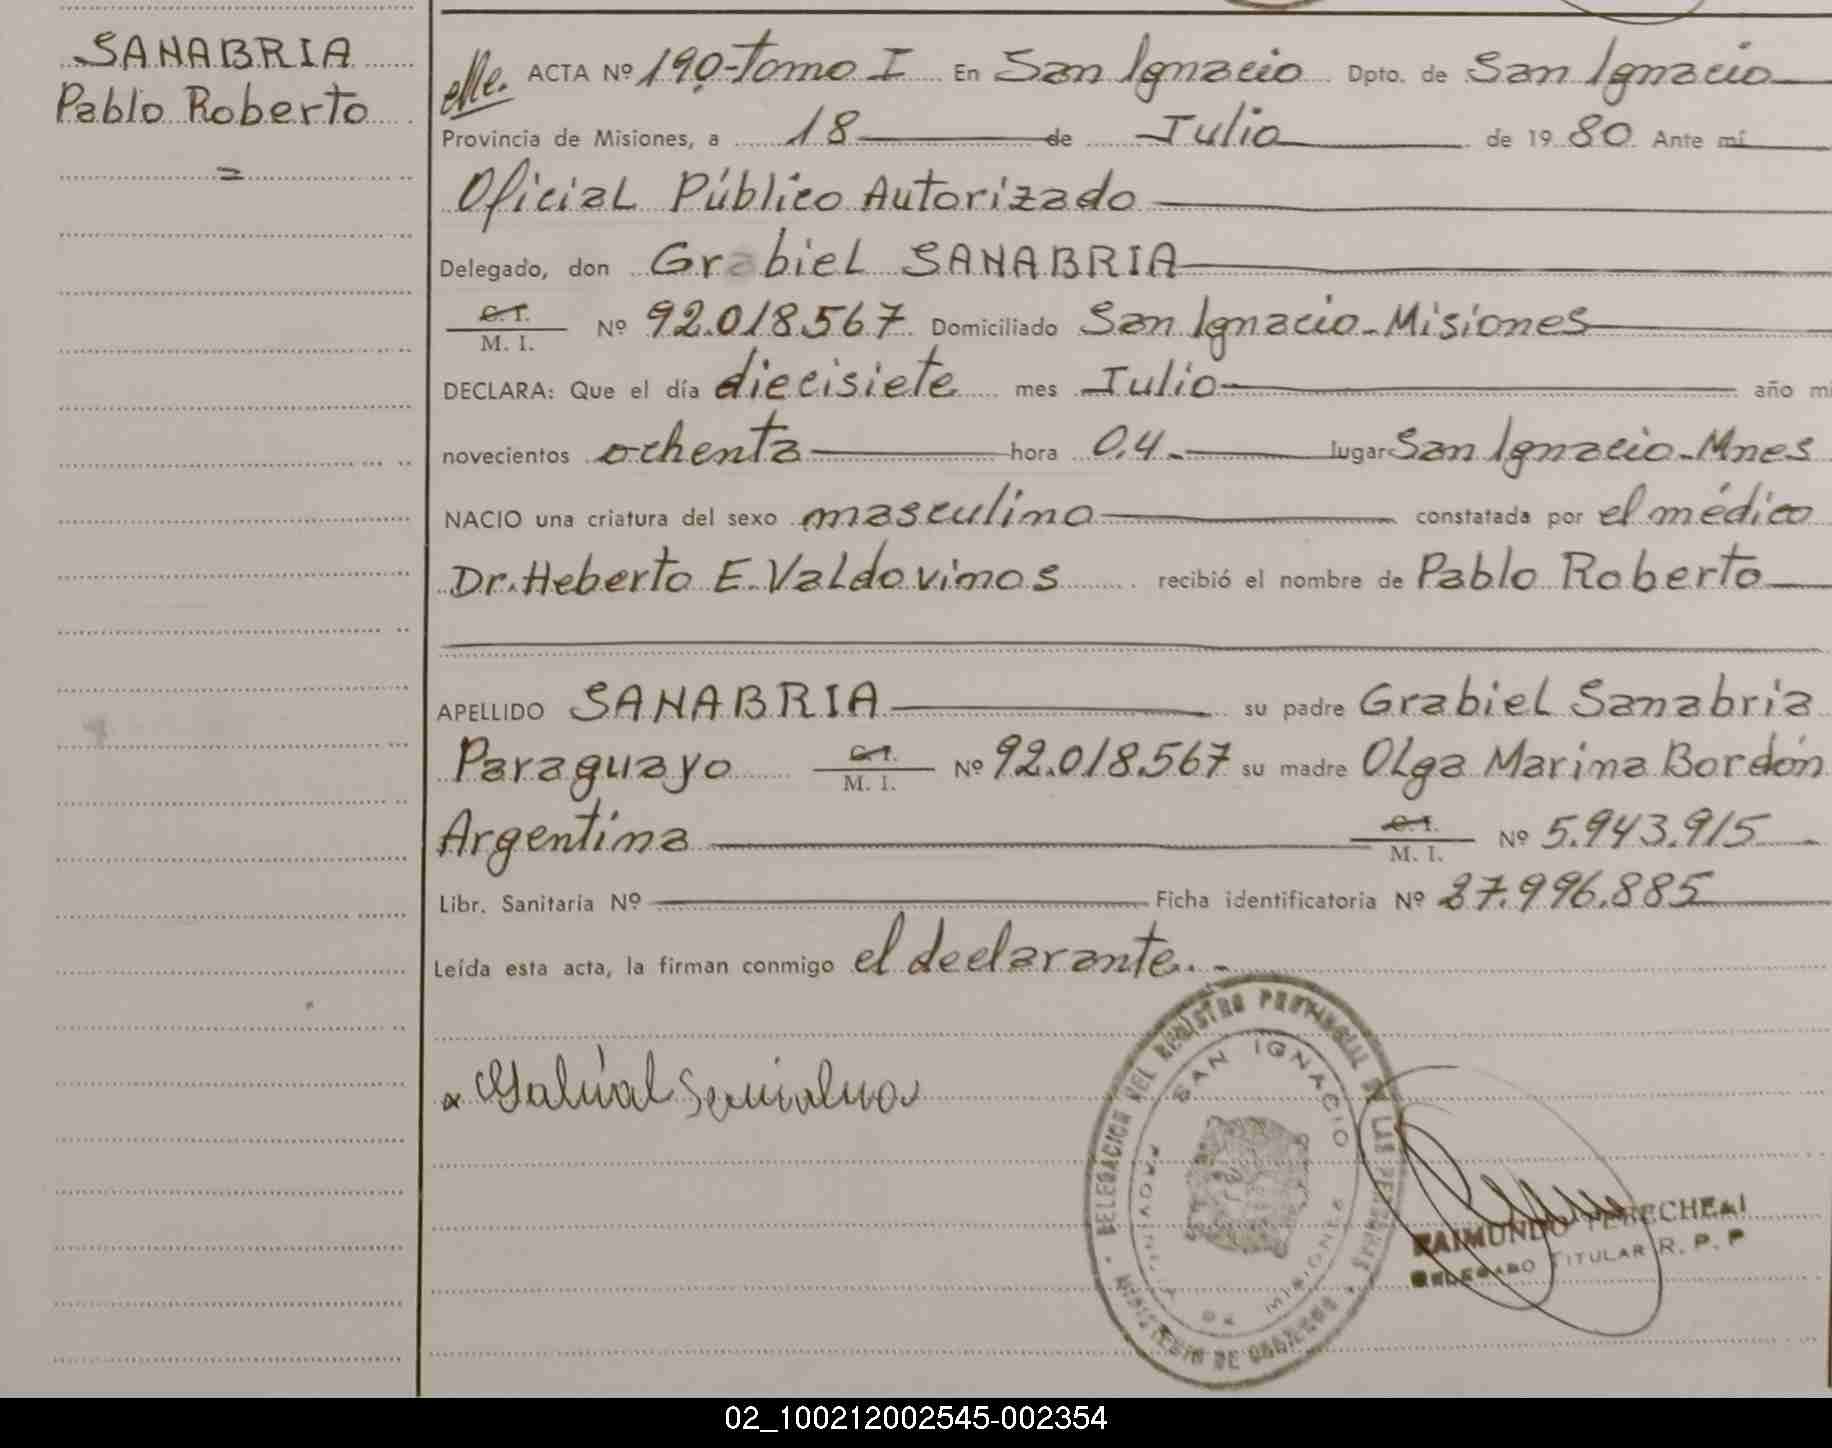 SANABRIA
Pablo Roberto
=
ACTA Nº 190-Tomo I En San Ignacio Dpto. de San Ignacio
Provincia de Misiones, a 18 de Julio de 19 80 Ante mí
Oficial Público Autorizado
Delegado, don Grabiel SANABRIA
C. I.
M. I. Nº 92.018.567 Domiciliado San Ignacio-Misiones
DECLARA: Que el día diecisiete mes Julio año mi
novecientos ochenta hora 04.- lugar San Ignacio-Mnes
NACIO una criatura del sexo masculino constatada por el médico
Dr. Heberto E. Valdovinos recibió el nombre de Pablo Roberto
APELLIDO SANABRIA su padre Grabiel Sanabria
Paraguayo C. I. M. I. Nº 92.018.567 su madre Olga Marina Bordón
Argentina C. I. M. I. Nº 5.943.915
Libr. Sanitaria Nº Ficha identificatoria Nº 27.996.885
Leída esta acta, la firman conmigo el declarante.-
DELEGACION DEL REGISTRO PROVINCIAL DE LAS PERSONAS
SAN IGNACIO
PROVINCIA DE MISIONES
MINISTERIO DE GOBIERNO
RAIMUNDO
DELEGADO TITULAR R. P. P
02_100212002545-002354